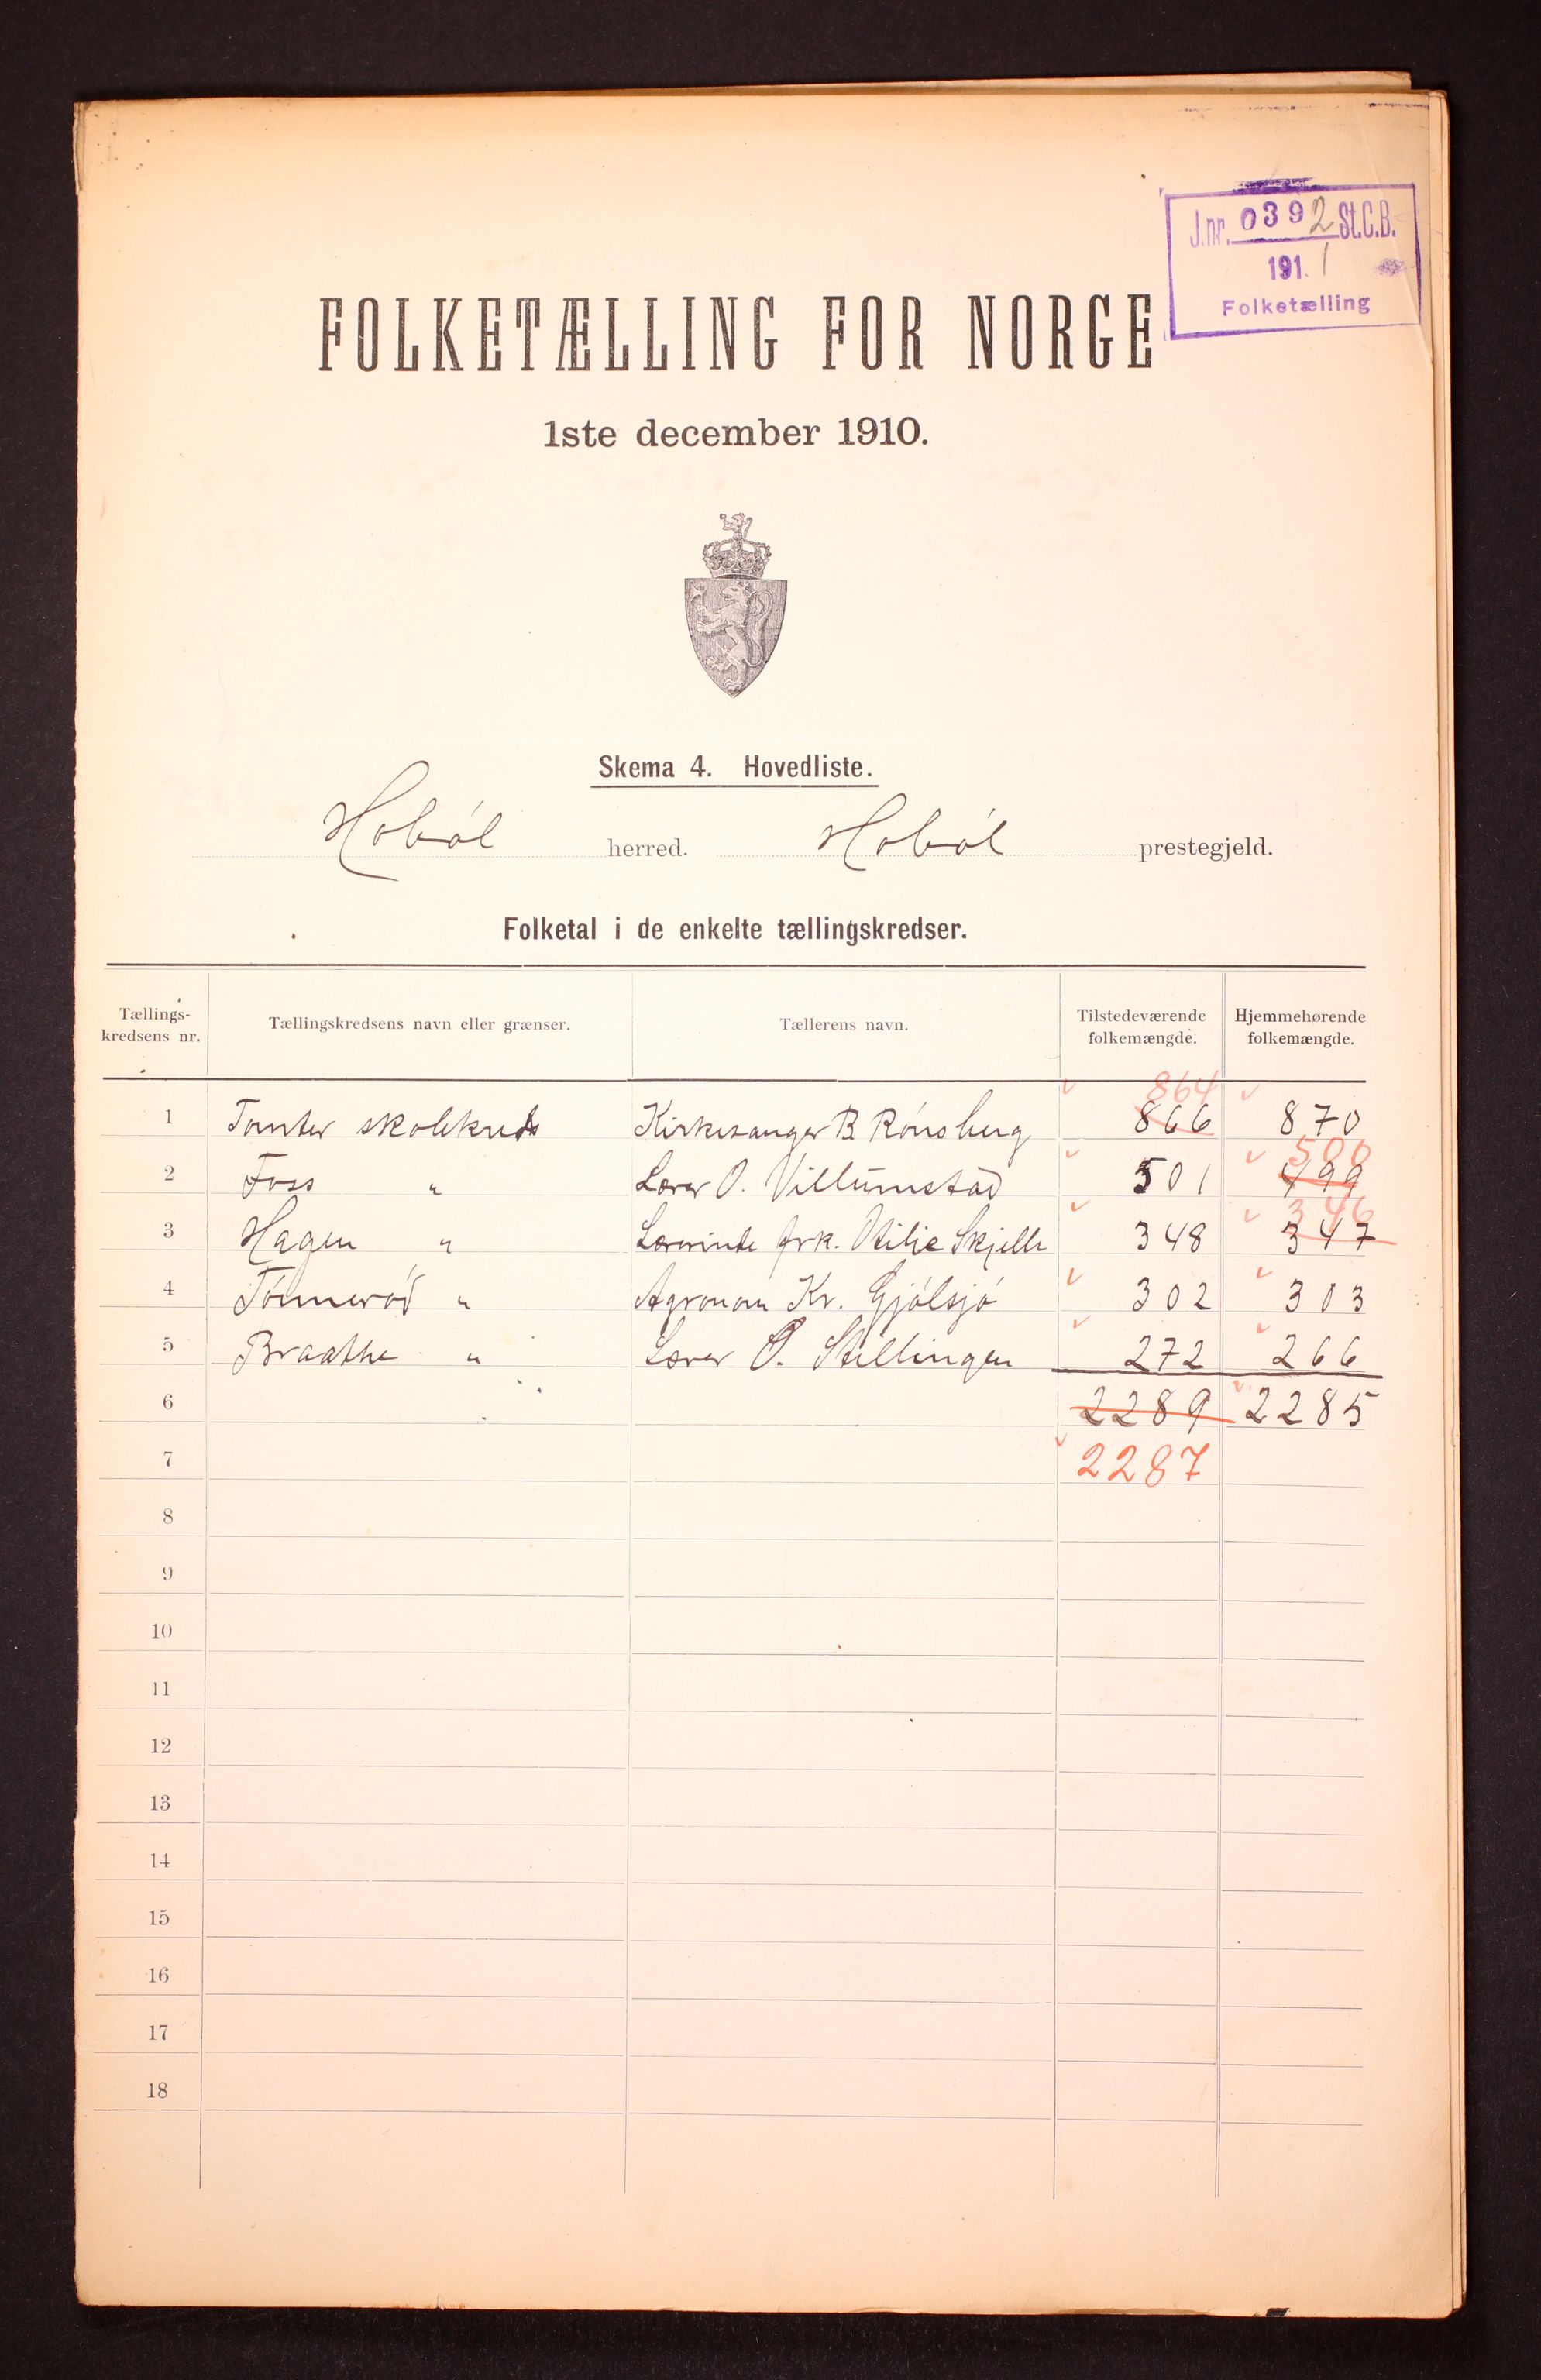 J.nr. 0392 St.C.B.
191. 1
Folketælling
FOLKETÆLLING FOR NORGE
1ste december 1910.
Skema 4. Hovedliste.
Hobøl herred. Hobøl prestegjeld.
Folketal i de enkelte tællingskredser.
Tællings-kredsens nr. Tællingskredsens navn eller grænser. Tællerens navn. Tilstedeværende folkemængde. Hjemmehørende folkemængde.
864
1 Tomter skolekreds Kirkesanger B. Rønsberg 866 870
500
2 Foss " Lærer O. Villumstad 501 499
346
3 Hagen " Lærerinde frk. Otilie Skjelle 348 347
4 Tønnerød " Agronom Kr. Gjølsjø 302 303
5 Braathe " Lærer O. Stillingen 272 266
6 2289 2285
7 2287
8
9
10
11
12
13
14
15
16
17
18